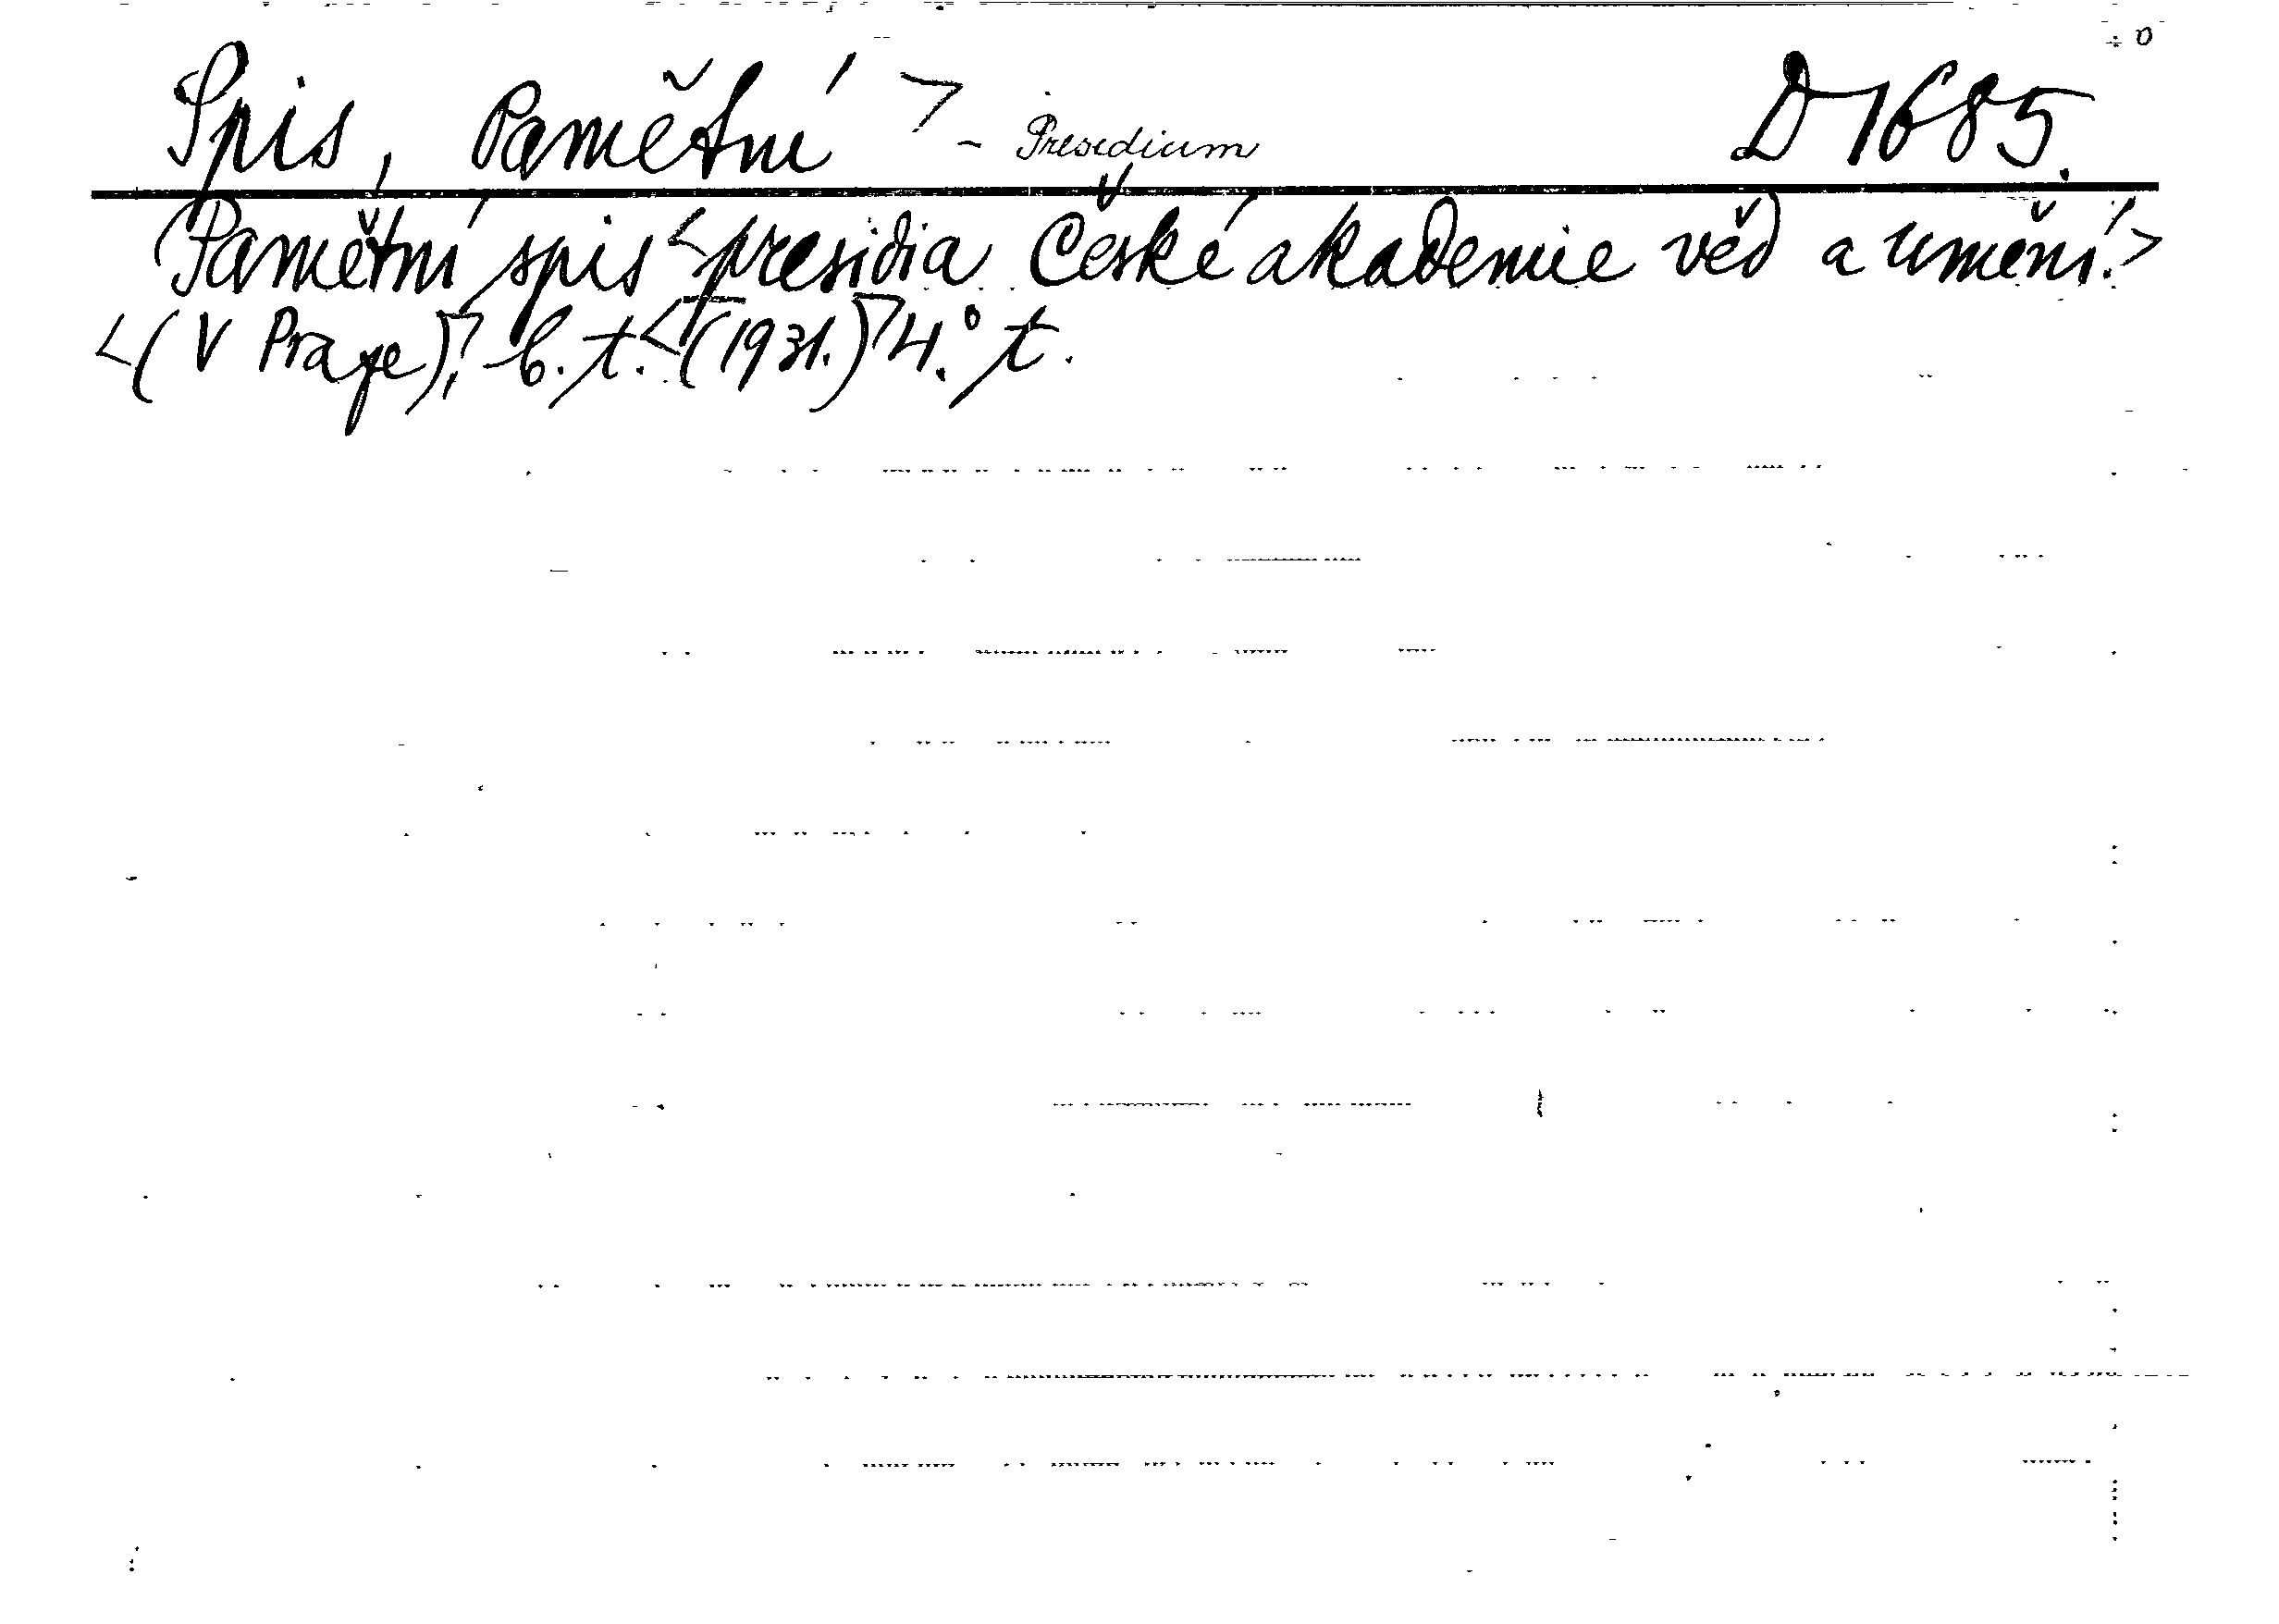 Spis, Pamětní > - Presidium D 1685.
Pamětní spis <presidia České akademie věd a umění.>
<(V Praze),> b. t. <(1931.)> 4.° t.